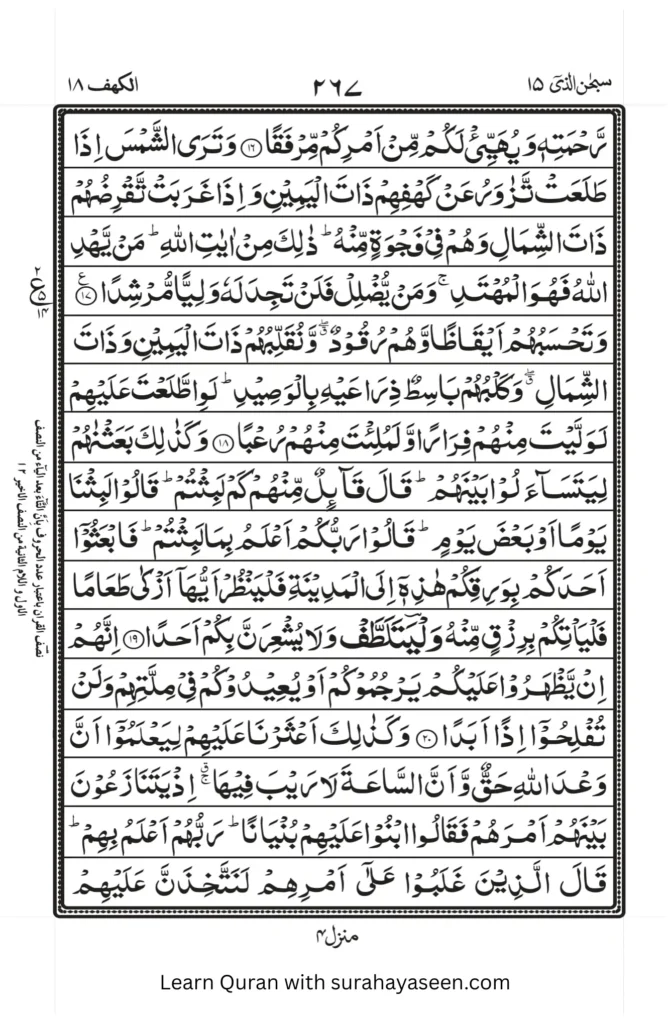 سبحٰن الذیٓ ١٥
٢٦٧
الکهف ١٨
رَّحْمَتِهٖ وَيُهَيِّئْ لَكُمْ مِّنْ اَمْرِكُمْ مِّرْفَقًا ﴿١٦﴾ وَتَرَى الشَّمْسَ اِذَا
طَلَعَتْ تَّزٰوَرُ عَنْ كَهْفِهِمْ ذَاتَ الْيَمِيْنِ وَاِذَا غَرَبَتْ تَّقْرِضُهُمْ
ذَاتَ الشِّمَالِ وَهُمْ فِيْ فَجْوَةٍ مِّنْهُ ؕ ذٰلِكَ مِنْ اٰيٰتِ اللّٰهِ ؕ مَنْ يَّهْدِ
اللّٰهُ فَهُوَ الْمُهْتَدِ ۚ وَمَنْ يُّضْلِلْ فَلَنْ تَجِدَ لَهٗ وَلِيًّا مُّرْشِدًا ﴿١٧﴾
وَتَحْسَبُهُمْ اَيْقَاظًا وَّهُمْ رُقُوْدٌ ۖ وَّنُقَلِّبُهُمْ ذَاتَ الْيَمِيْنِ وَذَاتَ
الشِّمَالِ ۖ وَكَلْبُهُمْ بَاسِطٌ ذِرَاعَيْهِ بِالْوَصِيْدِ ؕ لَوِ اطَّلَعْتَ عَلَيْهِمْ
لَوَلَّيْتَ مِنْهُمْ فِرَارًا وَّلَمُلِئْتَ مِنْهُمْ رُعْبًا ﴿١٨﴾ وَكَذٰلِكَ بَعَثْنٰهُمْ
لِيَتَسَآءَلُوْا بَيْنَهُمْ ؕ قَالَ قَآىِٕلٌ مِّنْهُمْ كَمْ لَبِثْتُمْ ؕ قَالُوْا لَبِثْنَا
يَوْمًا اَوْ بَعْضَ يَوْمٍ ؕ قَالُوْا رَبُّكُمْ اَعْلَمُ بِمَا لَبِثْتُمْ ؕ فَابْعَثُوْۤا
اَحَدَكُمْ بِوَرِقِكُمْ هٰذِهٖۤ اِلَى الْمَدِيْنَةِ فَلْيَنْظُرْ اَيُّهَاۤ اَزْكٰى طَعَامًا
فَلْيَاْتِكُمْ بِرِزْقٍ مِّنْهُ وَلْيَتَلَطَّفْ وَلَا يُشْعِرَنَّ بِكُمْ اَحَدًا ﴿١٩﴾ اِنَّهُمْ
اِنْ يَّظْهَرُوْا عَلَيْكُمْ يَرْجُمُوْكُمْ اَوْ يُعِيْدُوْكُمْ فِيْ مِلَّتِهِمْ وَلَنْ
تُفْلِحُوْۤا اِذًا اَبَدًا ﴿٢٠﴾ وَكَذٰلِكَ اَعْثَرْنَا عَلَيْهِمْ لِيَعْلَمُوْۤا اَنَّ
وَعْدَ اللّٰهِ حَقٌّ وَّاَنَّ السَّاعَةَ لَا رَيْبَ فِيْهَا ۚ اِذْ يَتَنَازَعُوْنَ
بَيْنَهُمْ اَمْرَهُمْ فَقَالُوا ابْنُوْا عَلَيْهِمْ بُنْيَانًا ؕ رَبُّهُمْ اَعْلَمُ بِهِمْ ؕ
قَالَ الَّذِيْنَ غَلَبُوْا عَلٰۤى اَمْرِهِمْ لَنَتَّخِذَنَّ عَلَيْهِمْ
نصف القران باعتبار عدد الحروف بان التاء بعد الياء من النصف
الاول و اللام الثانية من النصف الاخير ١٢
منزل ٤
Learn Quran with surahayaseen.com